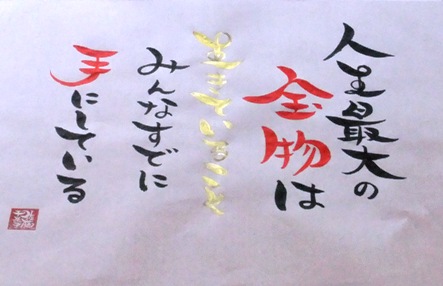 人生最大の
宝物は
生きていること
みんなすでに
手にしている